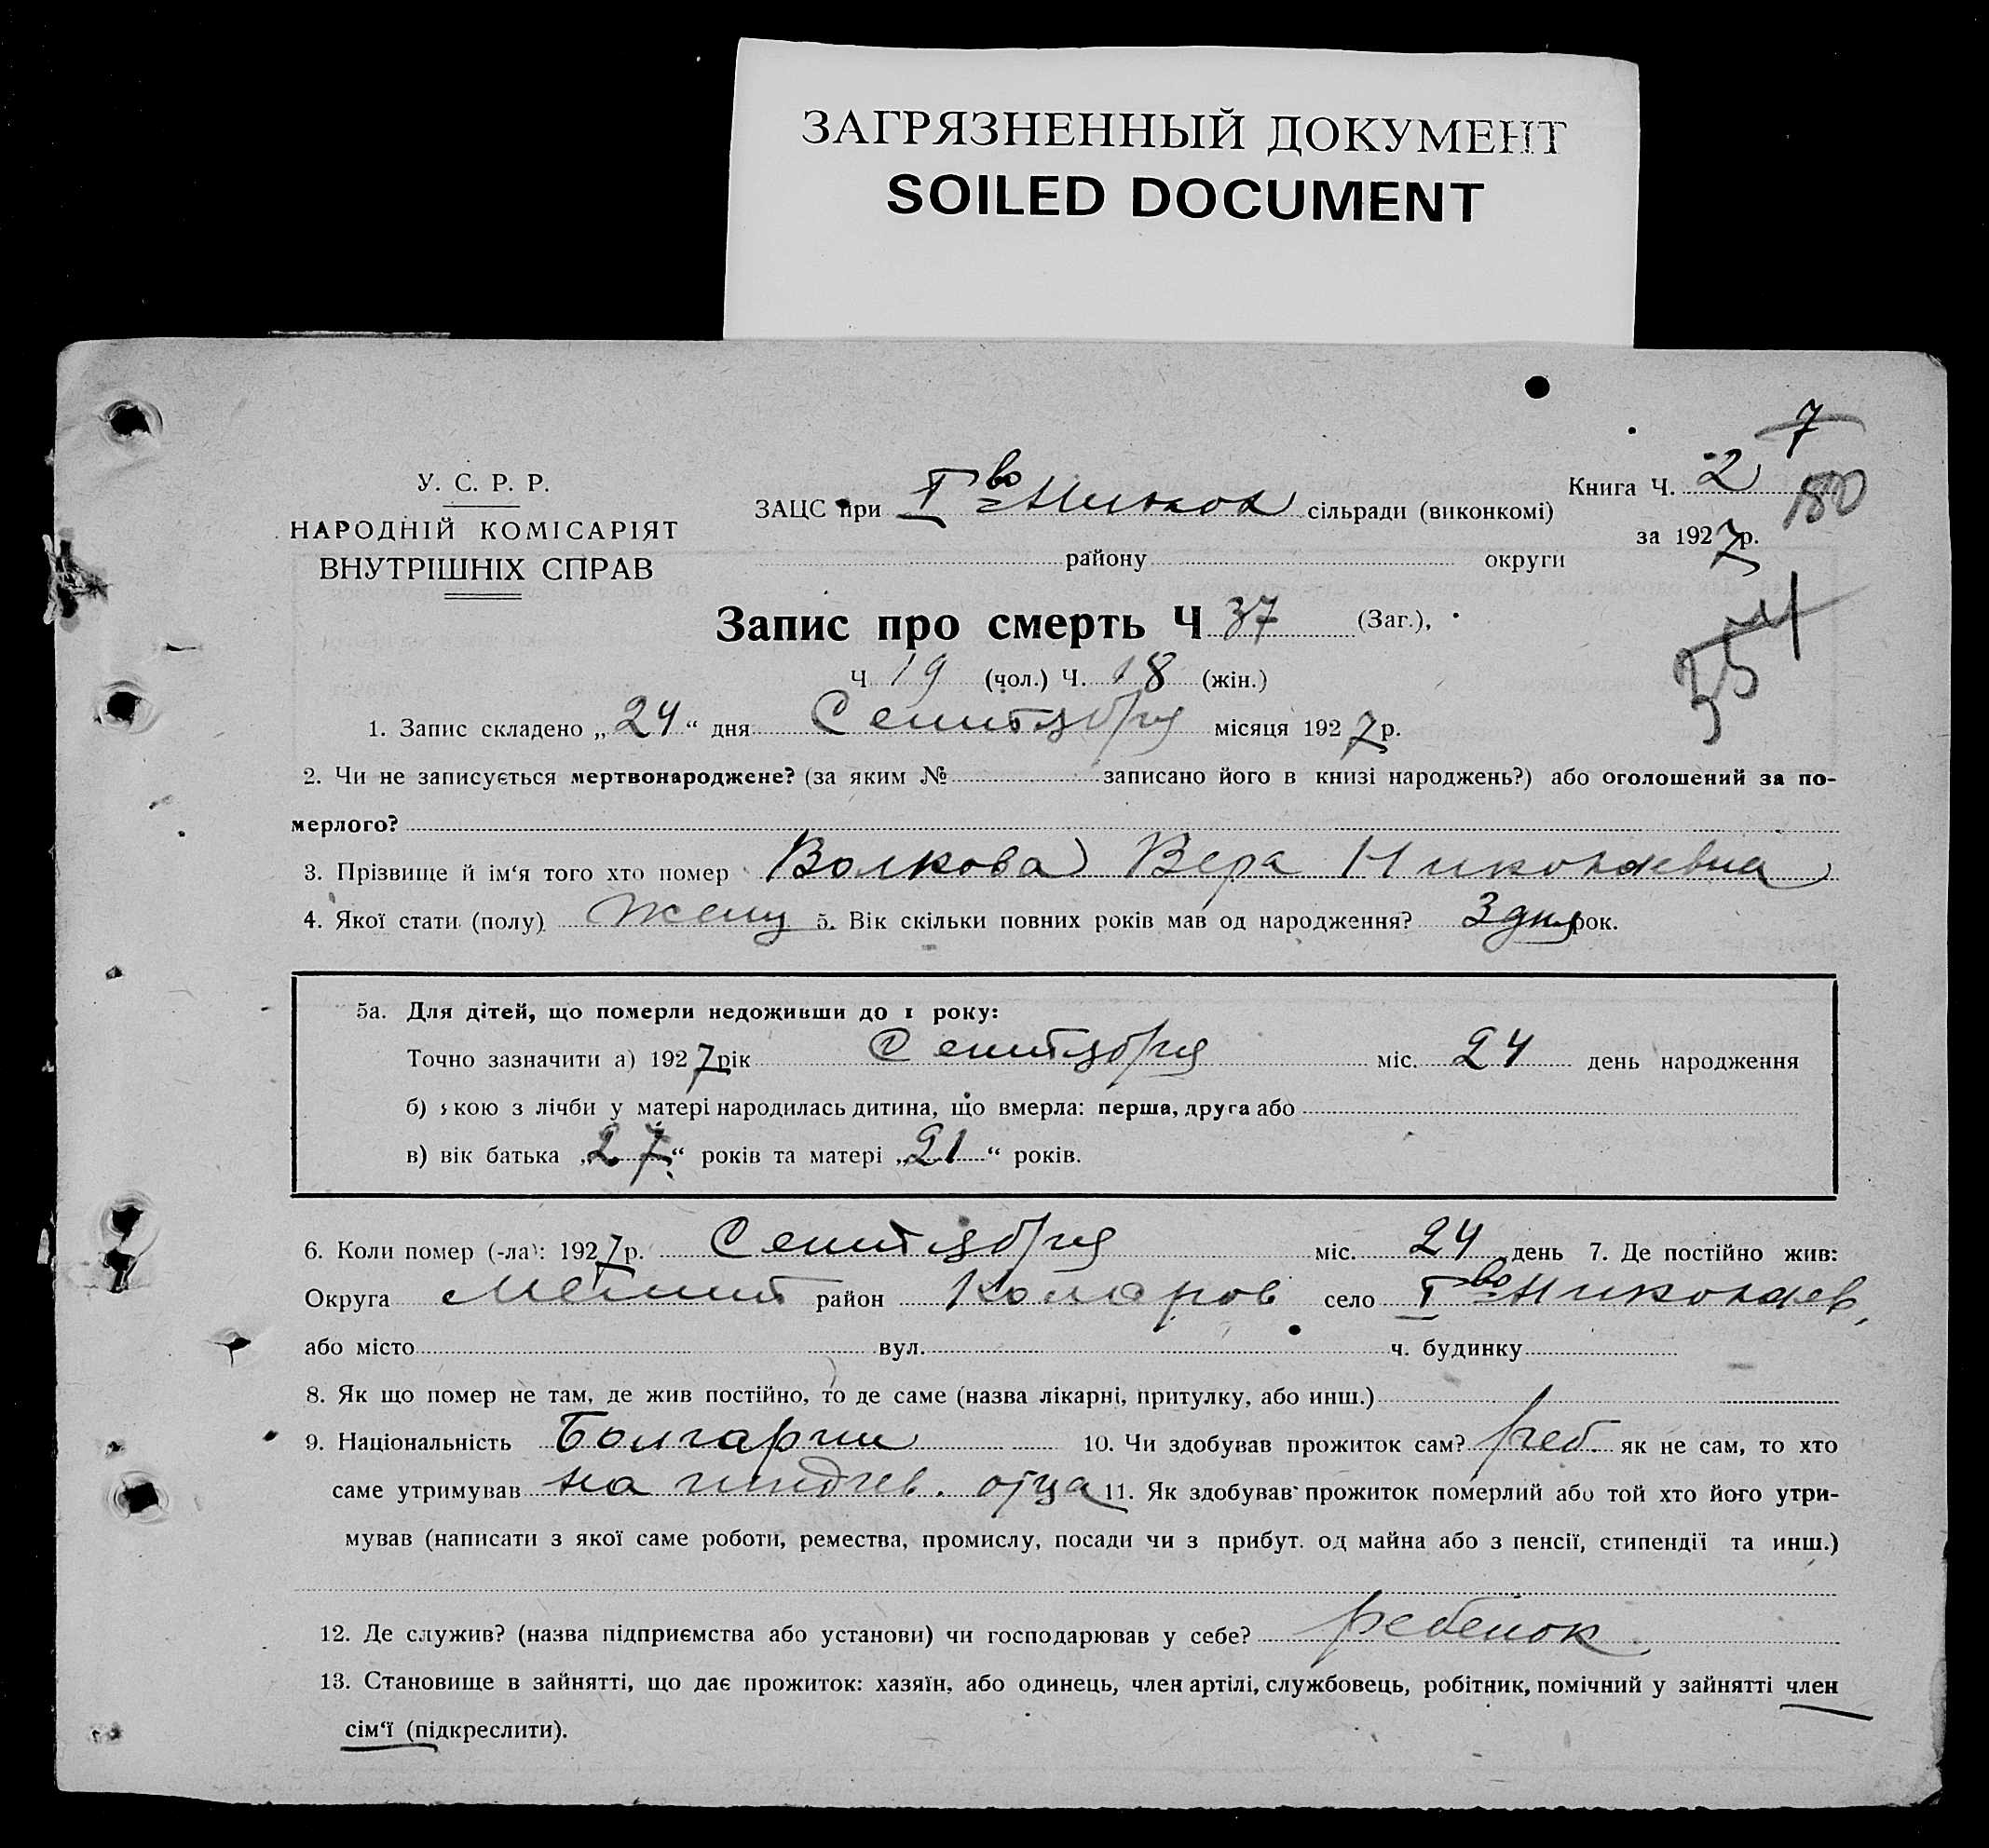 ЗАГРЯЗНЕННЫЙ ДОКУМЕНТ
SOILED DOCUMENT
7
У. С. Р. Р.
НАРОДНІЙ КОМІСАРІЯТ
ВНУТРІШНІХ СПРАВ
ЗАЦС при Iво Никол сільради (виконкомі)
району округи
Книга Ч. 2
180
за 1927р.
354
Запис про смерть Ч 37 (Заг.),
Ч 19 (чол.) Ч. 18 (жін.)
1. Запис складено „24“ дня Сентября місяця 1927р.
2. Чи не записується мертвонароджене? (за яким № записано його в книзі народжень?) або оголошений за по-
мерлого?
3. Прізвище й ім‘я того хто помер Волкова Вера Николаевна
4. Якої стати (полу) женщ 5. Вік скільки повних років мав од народження? 3 дня рок.
5а. Для дітей, що померли недоживши до 1 року:
Точно зазначити а) 1927рік Сентября міс. 24 день народження
б) якою з лічби у матері народилась дитина, що вмерла: перша, друга або
в) вік батька „27“ років та матері „21“ років.
6. Коли помер (-ла): 1927р. Сентября міс. 24 день 7. Де постійно жив:
Округа Мелит район Коларов село Iво Николаев,
або місто вул. ч. будинку
8. Як що помер не там, де жив постійно, то де саме (назва лікарні, притулку, або инш.)
9. Національність Болгарии 10. Чи здобував прожиток сам? реб. як не сам, то хто
саме утримував на иждив. отца 11. Як здобував прожиток померлий або той хто його утри-
мував (написати з якої саме роботи, ремества, промислу, посади чи з прибут. од майна або з пенсії, стипендії та инш.)
12. Де служив? (назва підприємства або установи) чи господарював у себе? ребенок
13. Становище в зайнятті, що дає прожиток: хазяїн, або одинець, член артілі, службовець, робітник, помічний у зайнятті член
сім‘ї (підкреслити).